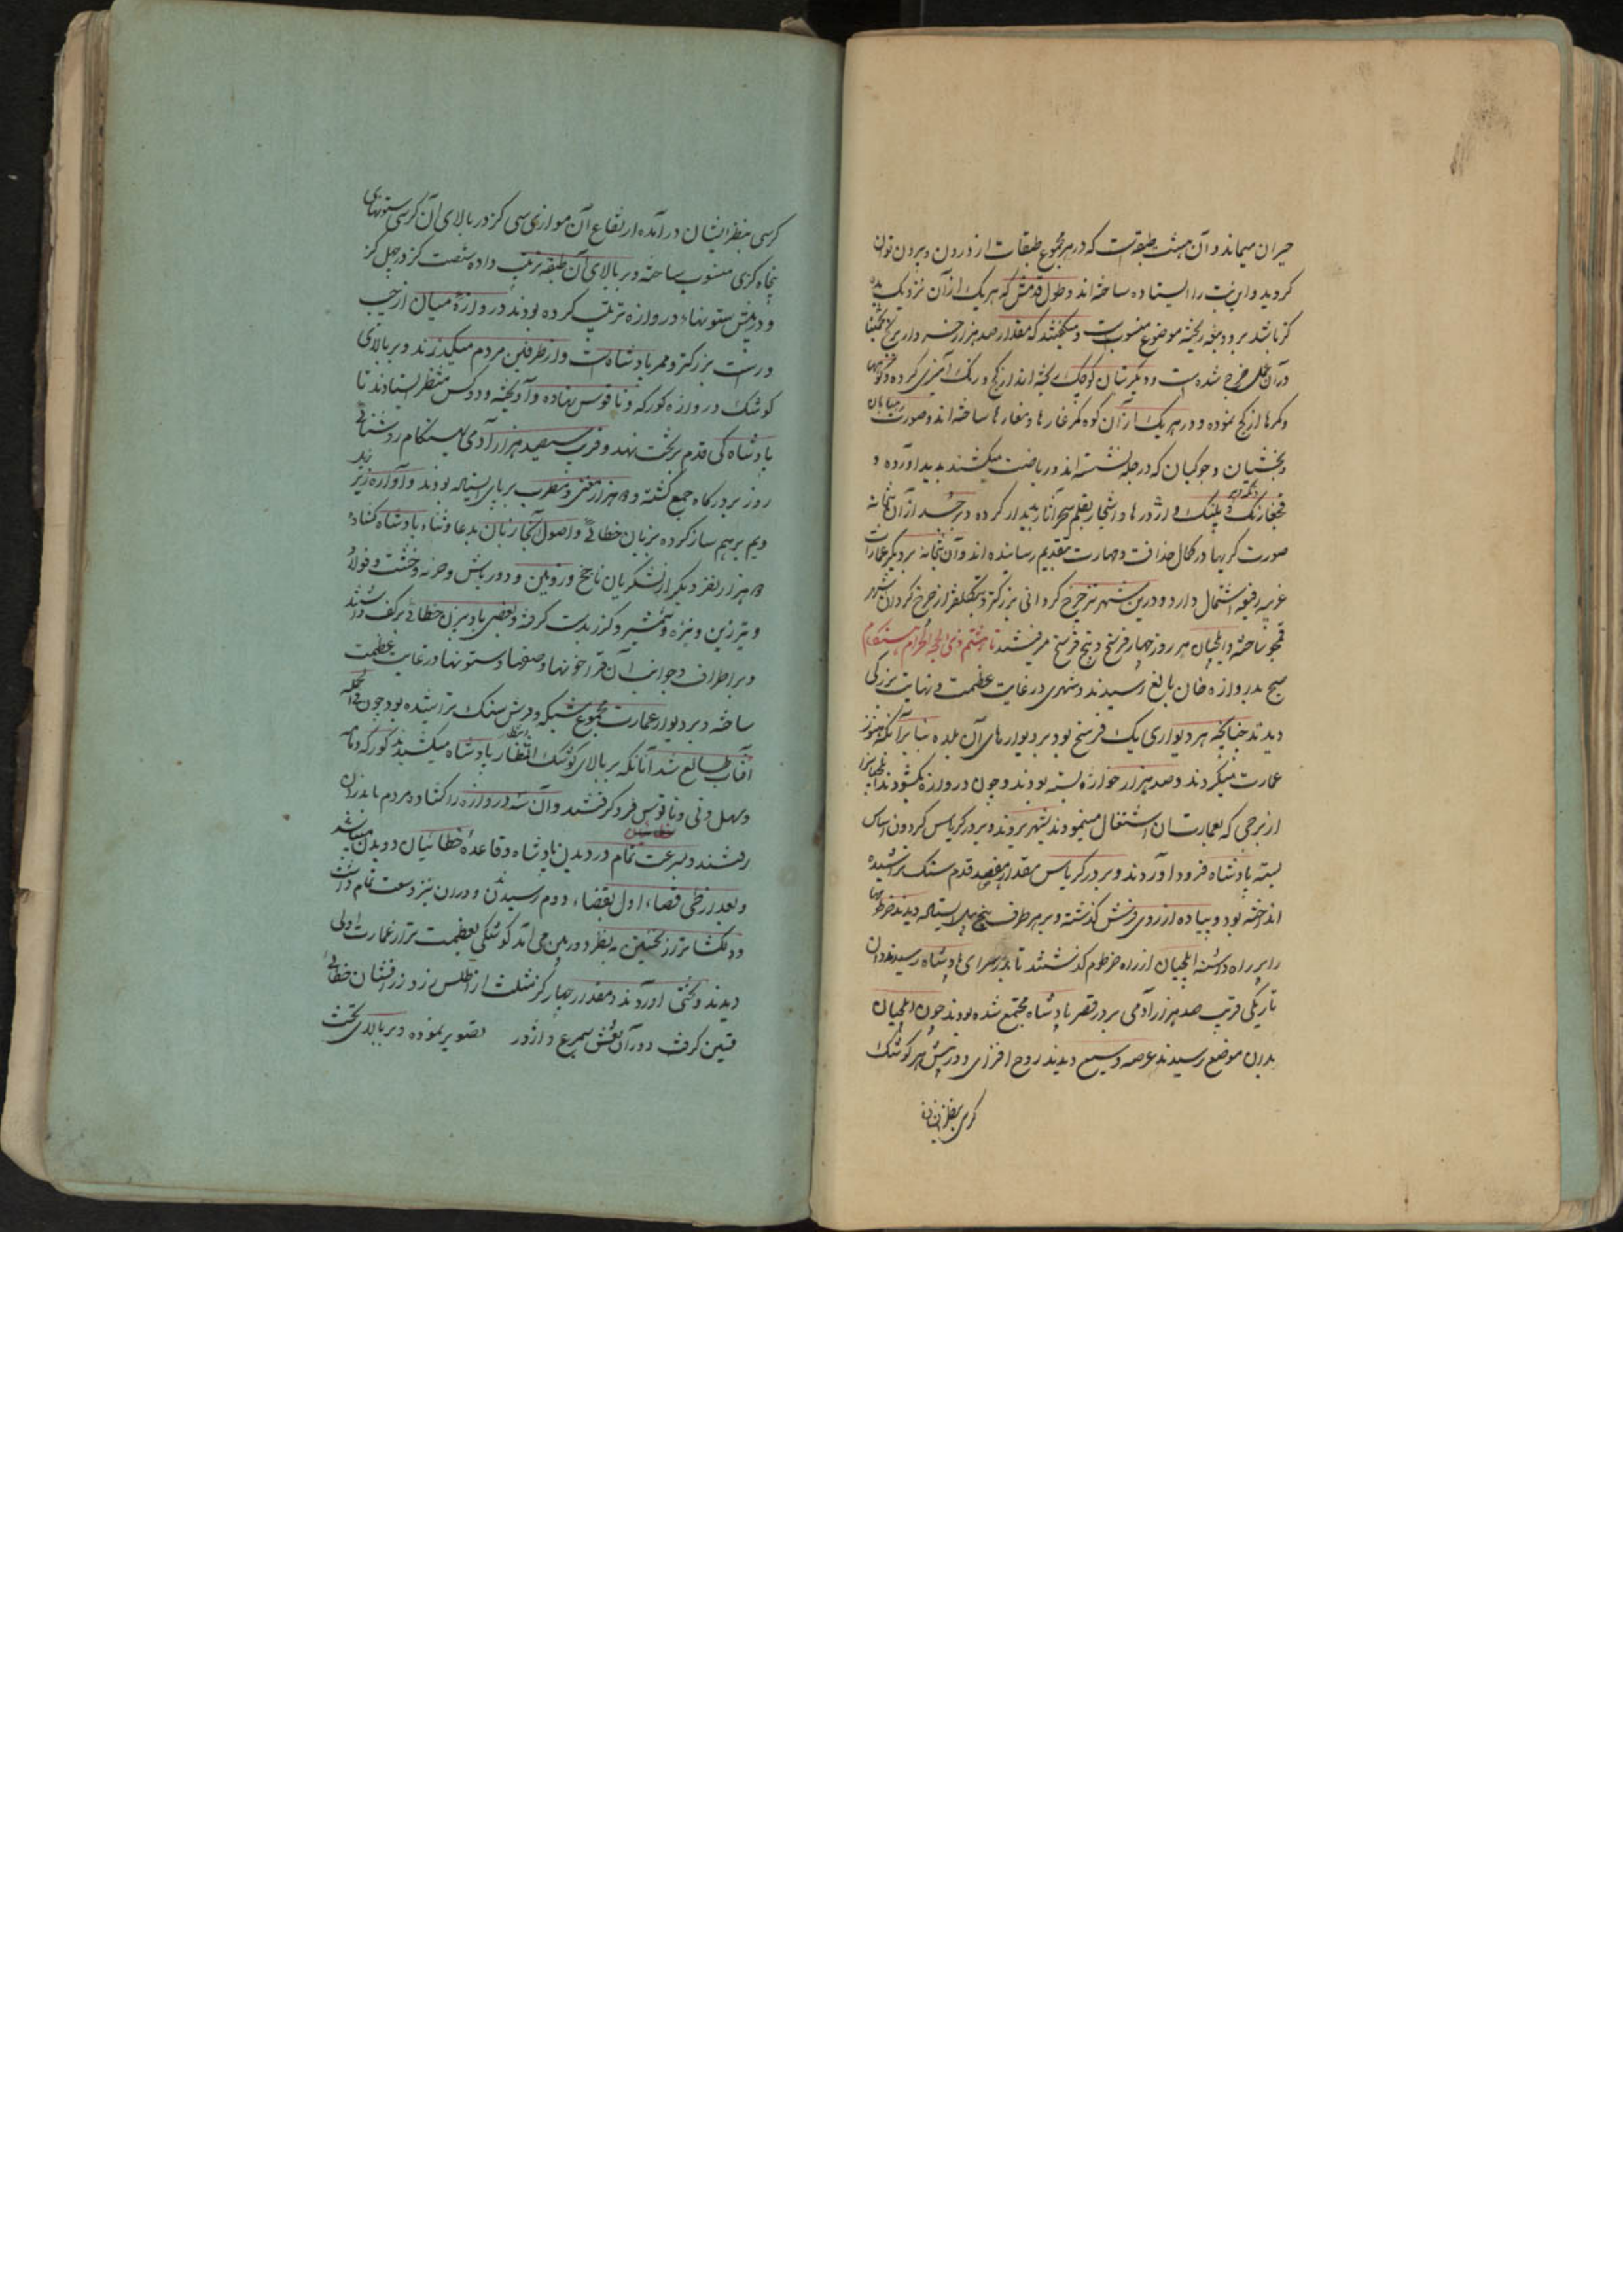 حیران میماند و آن هشت طبقه است که در هر مجموع طبقات از درون و بیرون توان
کردید و این بت را ایستاده ساخته اند و طول قدمش که هر یک از آن نزدیک بده
کز باشد بر و ریخته موضوع منسوبست و میکفتند که مقدار صد هزار خروار برنج تخمینا
در آن عمل خرج شده است و دیگر بتان کوچک ریخته اند از کچ و رنک آمیزی کرده و کوهها
و کمرها از کچ نموده و در هر یک از آن کوه کمر غارها و مغارها ساخته اند و صورت
و بخشیان و جوکیان که در چله نشسته اند و ریاضت میکشند پدید آورده و
و پلنک و اژدرها و اشجار بقلم سحر آثار پدیدار کرده و برخی از آن بتخانه
صورت کریها در کمال حذاقت و مهارت بتقدیم رسانیده اند و آن بتخانه بر دیگر عمارات
غریبه رفیعه اشتمال دارد و درین شهر نیز چرخ کردانی بزرکتر و بتکلفتر از چرخ کردان شهر
قمجو ساخته و ایلچیان هر روز چهار فرسخ و پنج فرسخ میرفتند تا هشتم ذی الحجه الحرام هنکام
صبح بدروازه خان بالغ رسیدند و شهری در غایت عظمت و نهایت بزرکی
دیدند چنانکه هر دیواری یک فرسخ بود بر دیوارهای آن بلده بنا بر آنکه هنوز
عمارت میکردند و صد هزار خوازه بسته بودند و چون دروازه نکشودند ایلچیانرا
از برجی که بعمارت آن اشتغال مینمودند بشهر بردند و بر در کریاس کردون اساس
بسته پادشاه فرود آوردند و بر در کریاس مقدار هفصد قدم سنک تراشیده
انداخته بود و پیاده از روی فرش کذشته و بر هر طرف پنج پیل ایستاده دیدند خرطومها
را بر راه داشته ایلچیان از راه خرطوم کذشتند تا بدر سرای پادشاه رسیدند و در آن
تاریکی قریب صد هزار آدمی بر در قصر پادشاه مجتمع شده بودند چون ایلچیان
بدان موضع رسیدند عرصه وسیع دیدند روح افزای و در پیش هر کوشک
کرسی بنظر ایشان
کرسی بنظر ایشان درآمده ارتفاع آن موازی سی کز در بالای آن کرسی ستونهای
پنجاه کزی منسوب ساخته و بر بالای آن طبقه ترتیب داده شصت کز در چهل کز
و در پیش ستونها دروازه ترتیب کرده بودند دروازه میان از چپ
و راست بزرکتر و ممر پادشاه است و از طرفین مردم میکذرند و بر بالای
کوشک دروازه کورکه و ناقوس نهاده و آویخته و دو کس منتظر ایستادند تا
پادشاه کی قدم بر تخت نهد و قریب سیصد هزار آدمی بهنکام روشنائی
روز بر درکاه جمع کشته و هزار مغنی و مطرب بر پای ایستاده بودند و آواره زیر
و بم بر هم ساز کرده بزبان خطائی و اصول آنجا زبان بدعا و ثناء پادشاه کشاده
هزار نفر دیکر از لشکریان ناچخ و زوبین و دورباش و حربه و خشت و فولاد
و تبرزین و نیزه و شمشیر و کرز بدست کرفته و بعضی بادبیزن خطائی بر کف داشتند
و بر اطراف و جوانب آن قرا خونها و صفها و ستونها در غایت عظمت
ساخته و بر دیوار عمارت مجموع شبکه و فرش سنک تراشیده بود چون
آفتاب طالع شد آنانکه بر بالای کوشک انتظار پادشاه میکشیدند کورکه و دمامه
و دهل و نی و ناقوس فرو کرفتند و آن سه دروازه را کشاده مردم باندرون
رفتند و بسرعت تمام در دیدن پادشاه و قاعده خطائیان دویدن میباشد
و بعد از طی فضاء اول بفضاء دوم رسیدند و در آن نیز وسعت تمام داشت
و دلکشاتر از نخستین بنظر دوربین می آمد کوشکی بعظمت تر از عمارت اولی
دیدند و تختی آوردند و مقدار چهار کز مثلث از اطلس زرد زرافشان خطائی
تزیین کرفته و در آن نقش سیمرغ و اژدر تصویر نموده و بر بالای تخت